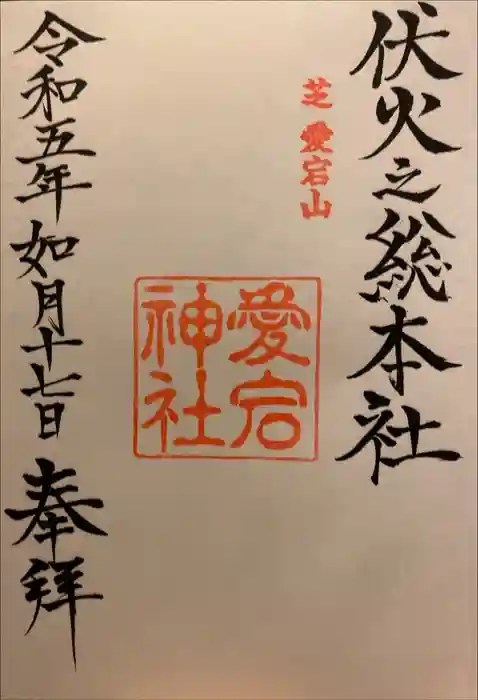 伏火之総本社
芝 愛宕山
愛宕
神社
令和五年 如月十七日 奉拝